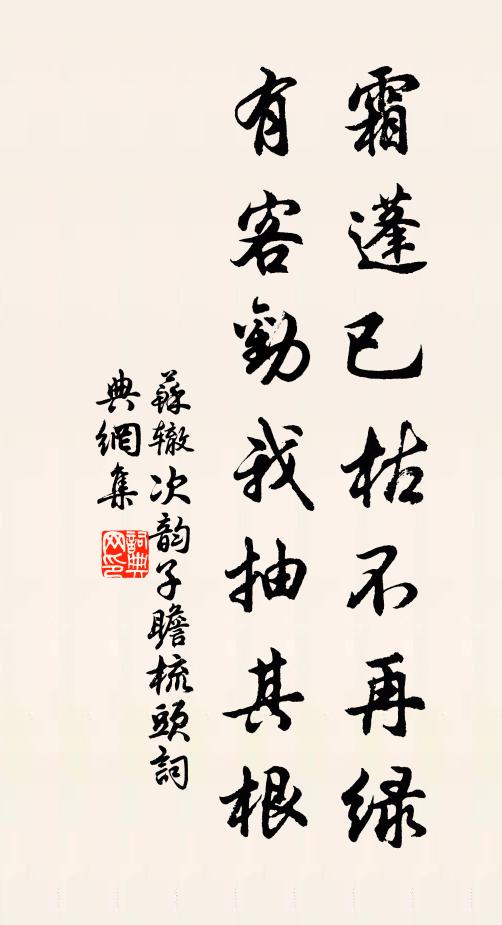 霜蓬已枯不再绿
有客勸我抽其根
蘇辙次韵子瞻梳頭詞
典網集
詞典网印